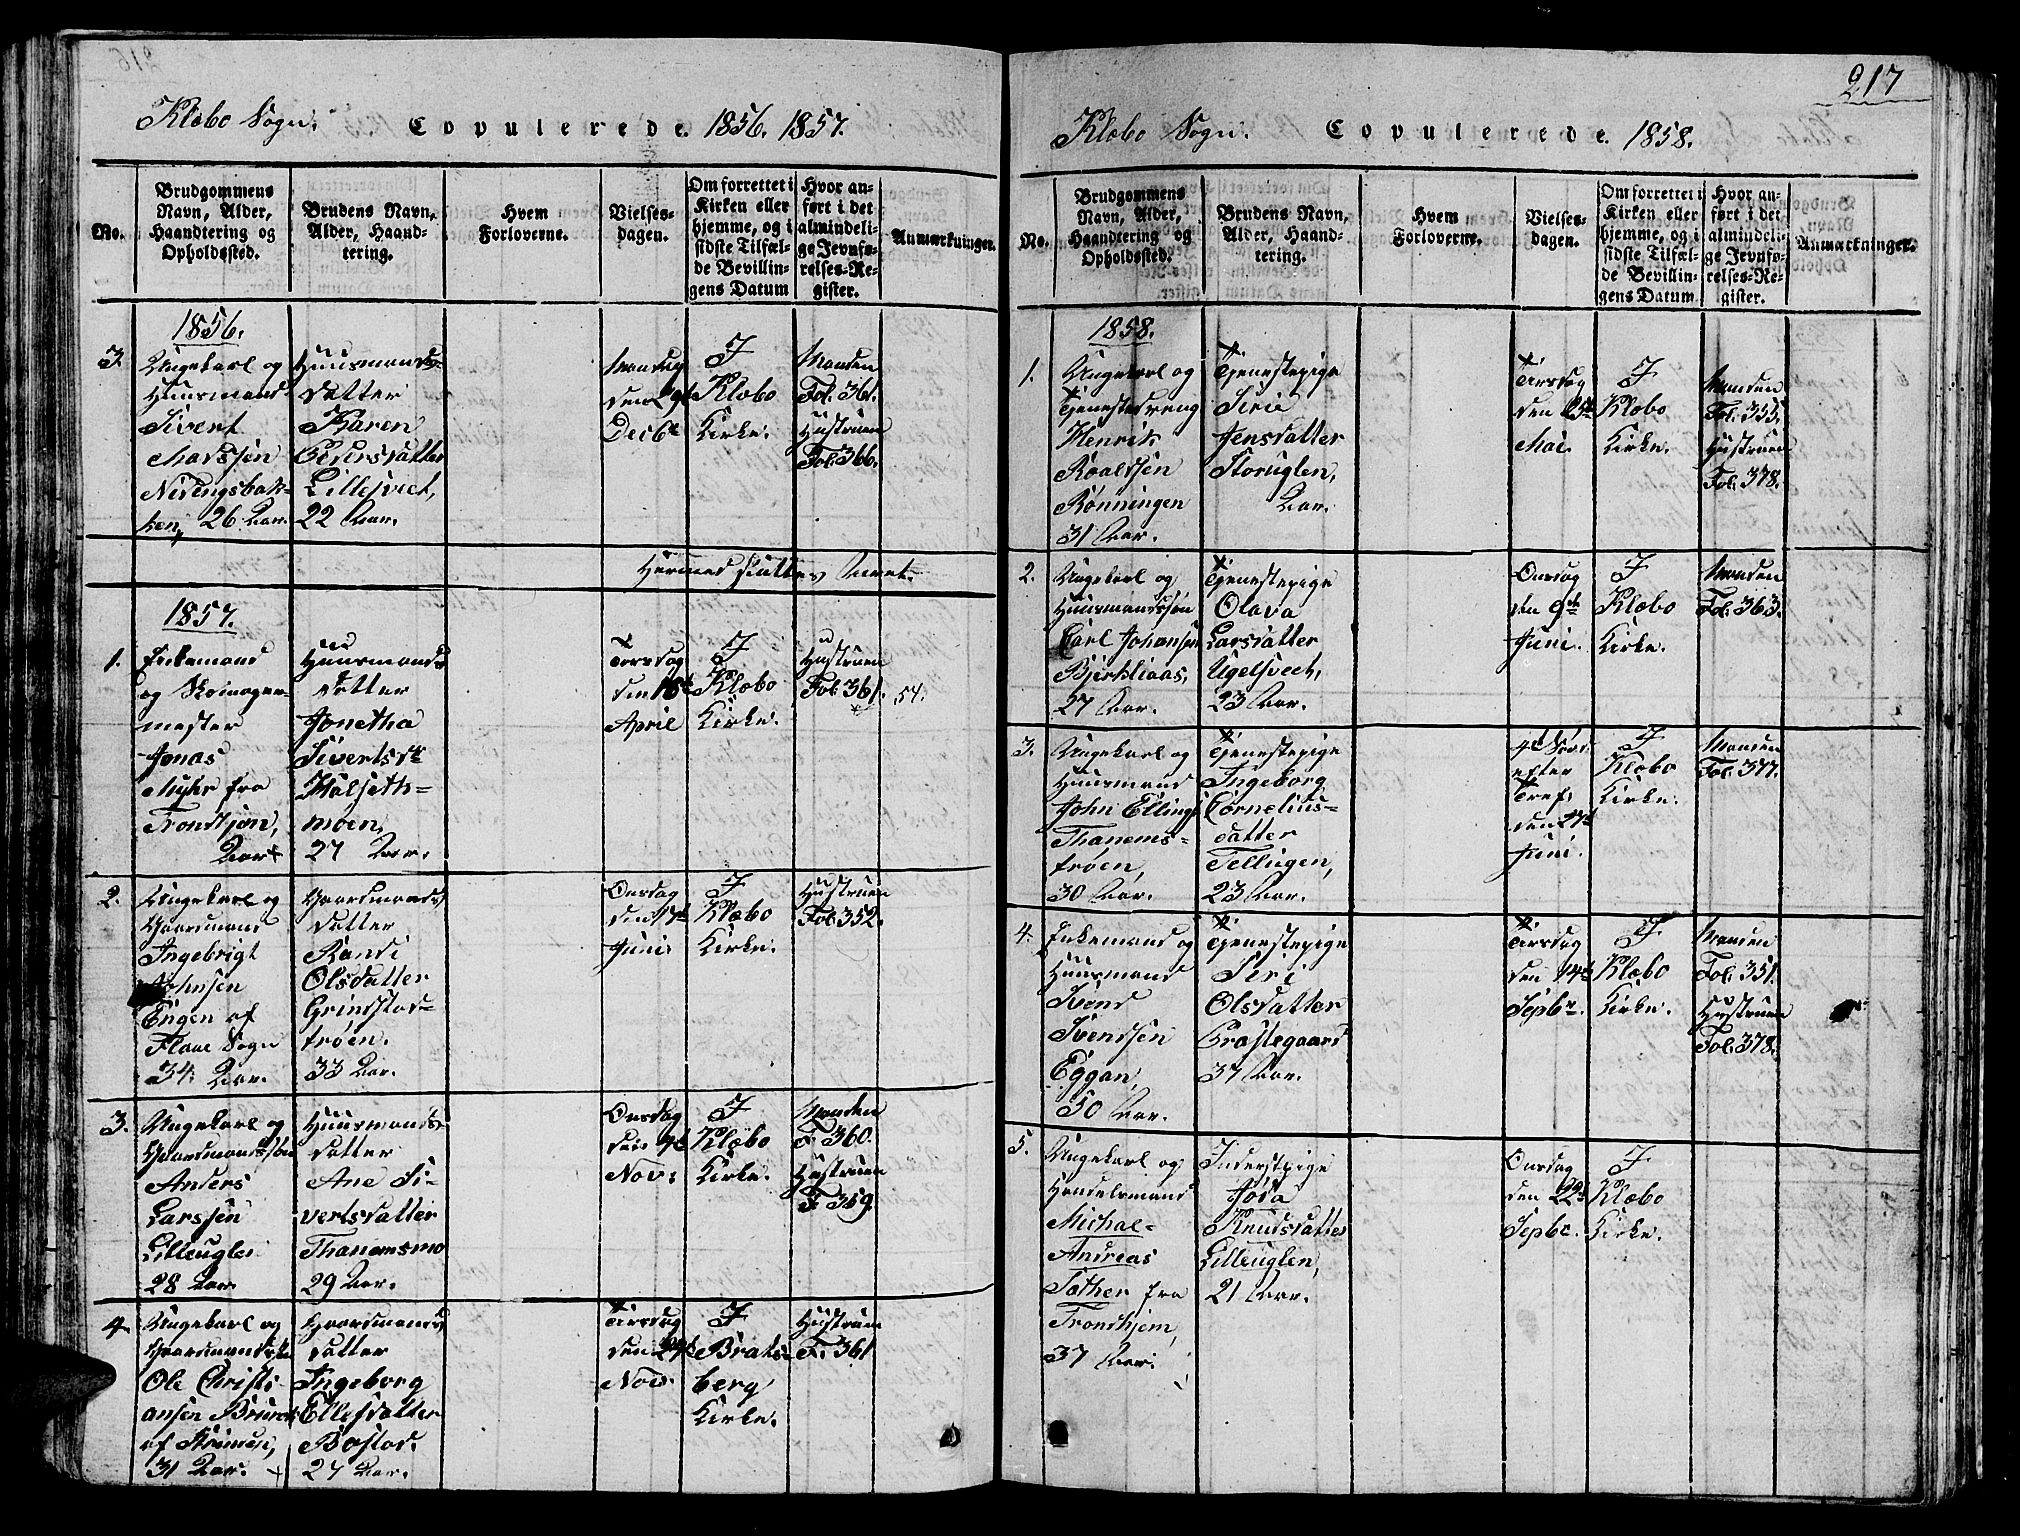 Klæbo Sogn. Copulerede. 1856. 1857.
No.
Brudgommens Navn, Alder, Haandtering og Opholdssted.
Brudens Navn, Alder, Haandtering.
Hvem Forloverne.
Vielsesdagen.
Om forrettet i Kirken eller hjemme, og i sidste Tilfælde Bevillingens Datum
Hvor anført i det almindelige Jevnførelses-Register.
Anmærkninger.
1856.
3.
Ungekarl og
Huusmand
Sivert
Madssen
Nidengsbak-
ken, 26 Aar.
Huusmands-
datter
Karen
Pedersdatter
Lillesveet,
22 Aar.
Mandag
den 9d
Decbr
I
Klæbo
Kirke.
Manden
Fol. 361.
Hustruen
Fol. 366.
Hermed sluttes Aaret.
1857.
1.
Enkemand
og Skomager-
mester
Jonas
Myhr fra
Trondhjem,
Aar
Huusmands
datter
Jonetha
Sivertsdr
Halseth-
moen,
27 Aar.
Torsdag
den 16d
April
I
Klæbo
Kirke.
Hustruen
Fol. 361.
54.
2.
Ungekarl og
Gaardmand
Ingebrigt
Johnsen
Engen af
Flaae Sogn
34. Aar.
Gaardmands
datter
Randi
Olsdatter
Grindstad-
trøen.
33 Aar.
Onsdag
den 17d
Juni.
I
Klæbo
Kirke.
Hustruen
Fol. 352.
3.
Ungekarl og
Gaardmandssøn
Anders
Larssen
Lilleuglen
28 Aar
Huusmands-
datter
Ane Si-
vertsdatter
Thanemsmo
29 Aar.
Onsdag
den 4d
Nov.
I
Klæbo
Kirke.
Manden
F. 360.
Hustruen
F. 359.
4.
Ungekarl og
Ole Christi-
ansen
31 Aar.
Gaardmands
datter
Ingeborg
Ellefsdatter
Bostad.
27 Aar.
Tirsdag
den 24d
Novb.
I
Brats-
berg
Kirke.
Hustruen
F. 361
217
Klæbo Sogn. Copulerede. 1858.
No.
Brudgommens Navn, Alder, Haandtering og Opholdssted.
Brudens Navn, Alder, Haandtering.
Hvem Forloverne.
Vielsesdagen.
Om forrettet i Kirken eller hjemme, og i sidste Tilfælde Bevillingens Datum.
Hvor anført i det almindelige Jevnførelses-Register.
Anmærkninger.
1858.
1.
Ungekarl og
Tjenestedreng
Henrik
Roaldsen
Rønningen
31 Aar.
Tjenestepige
Sirie
Jensdatter
Storuglen,
Aar.
Tirsdag
den 25d
Mai.
I
Klæbo
Kirke.
Manden
Fol. 355.
Hustruen
Fol. 378.
2.
Ungekarl og
Huusmandssøn
Carl Johansen
Bjerkliaas,
27 Aar.
Tjenestepige
Olava
Larsdatter
Ugelsveet,
23 Aar.
Onsdag
den 9de
Juni.
I
Klæbo
Kirke.
Manden
Fol. 363.
3.
Ungekarl og
Huusmand
John Ellings.
Thanems-
trøen,
30 Aar.
Tjenestepige
Ingeborg
Cornelius-
datter
Tellugen,
23 Aar.
4d Sønd.
efter
Tref.
den 27d
Juni.
I
Klæbo
Kirke.
Manden
Fol. 377.
4.
Enkemand og
Huusmand
Svend
Svendsen
Eggan,
50 Aar.
Tjenestepige
Siri
Olsdatter
Præstegaard
37 Aar.
Tirsdag
den 14d
Sepbr.
I
Klæbo
Kirke.
Manden
Fol. 351.
Hustruen
Fol. 378.
5.
Ungekarl og
Handelsmand
Michal-
Andreas
Sother fra
Trondhjem,
37 Aar.
Inderstpige
Jøda
Knudsdatter
Lilleuglen,
21 Aar.
Onsdag
den 22d
Sepbr.
I
Klæbo
Kirke.